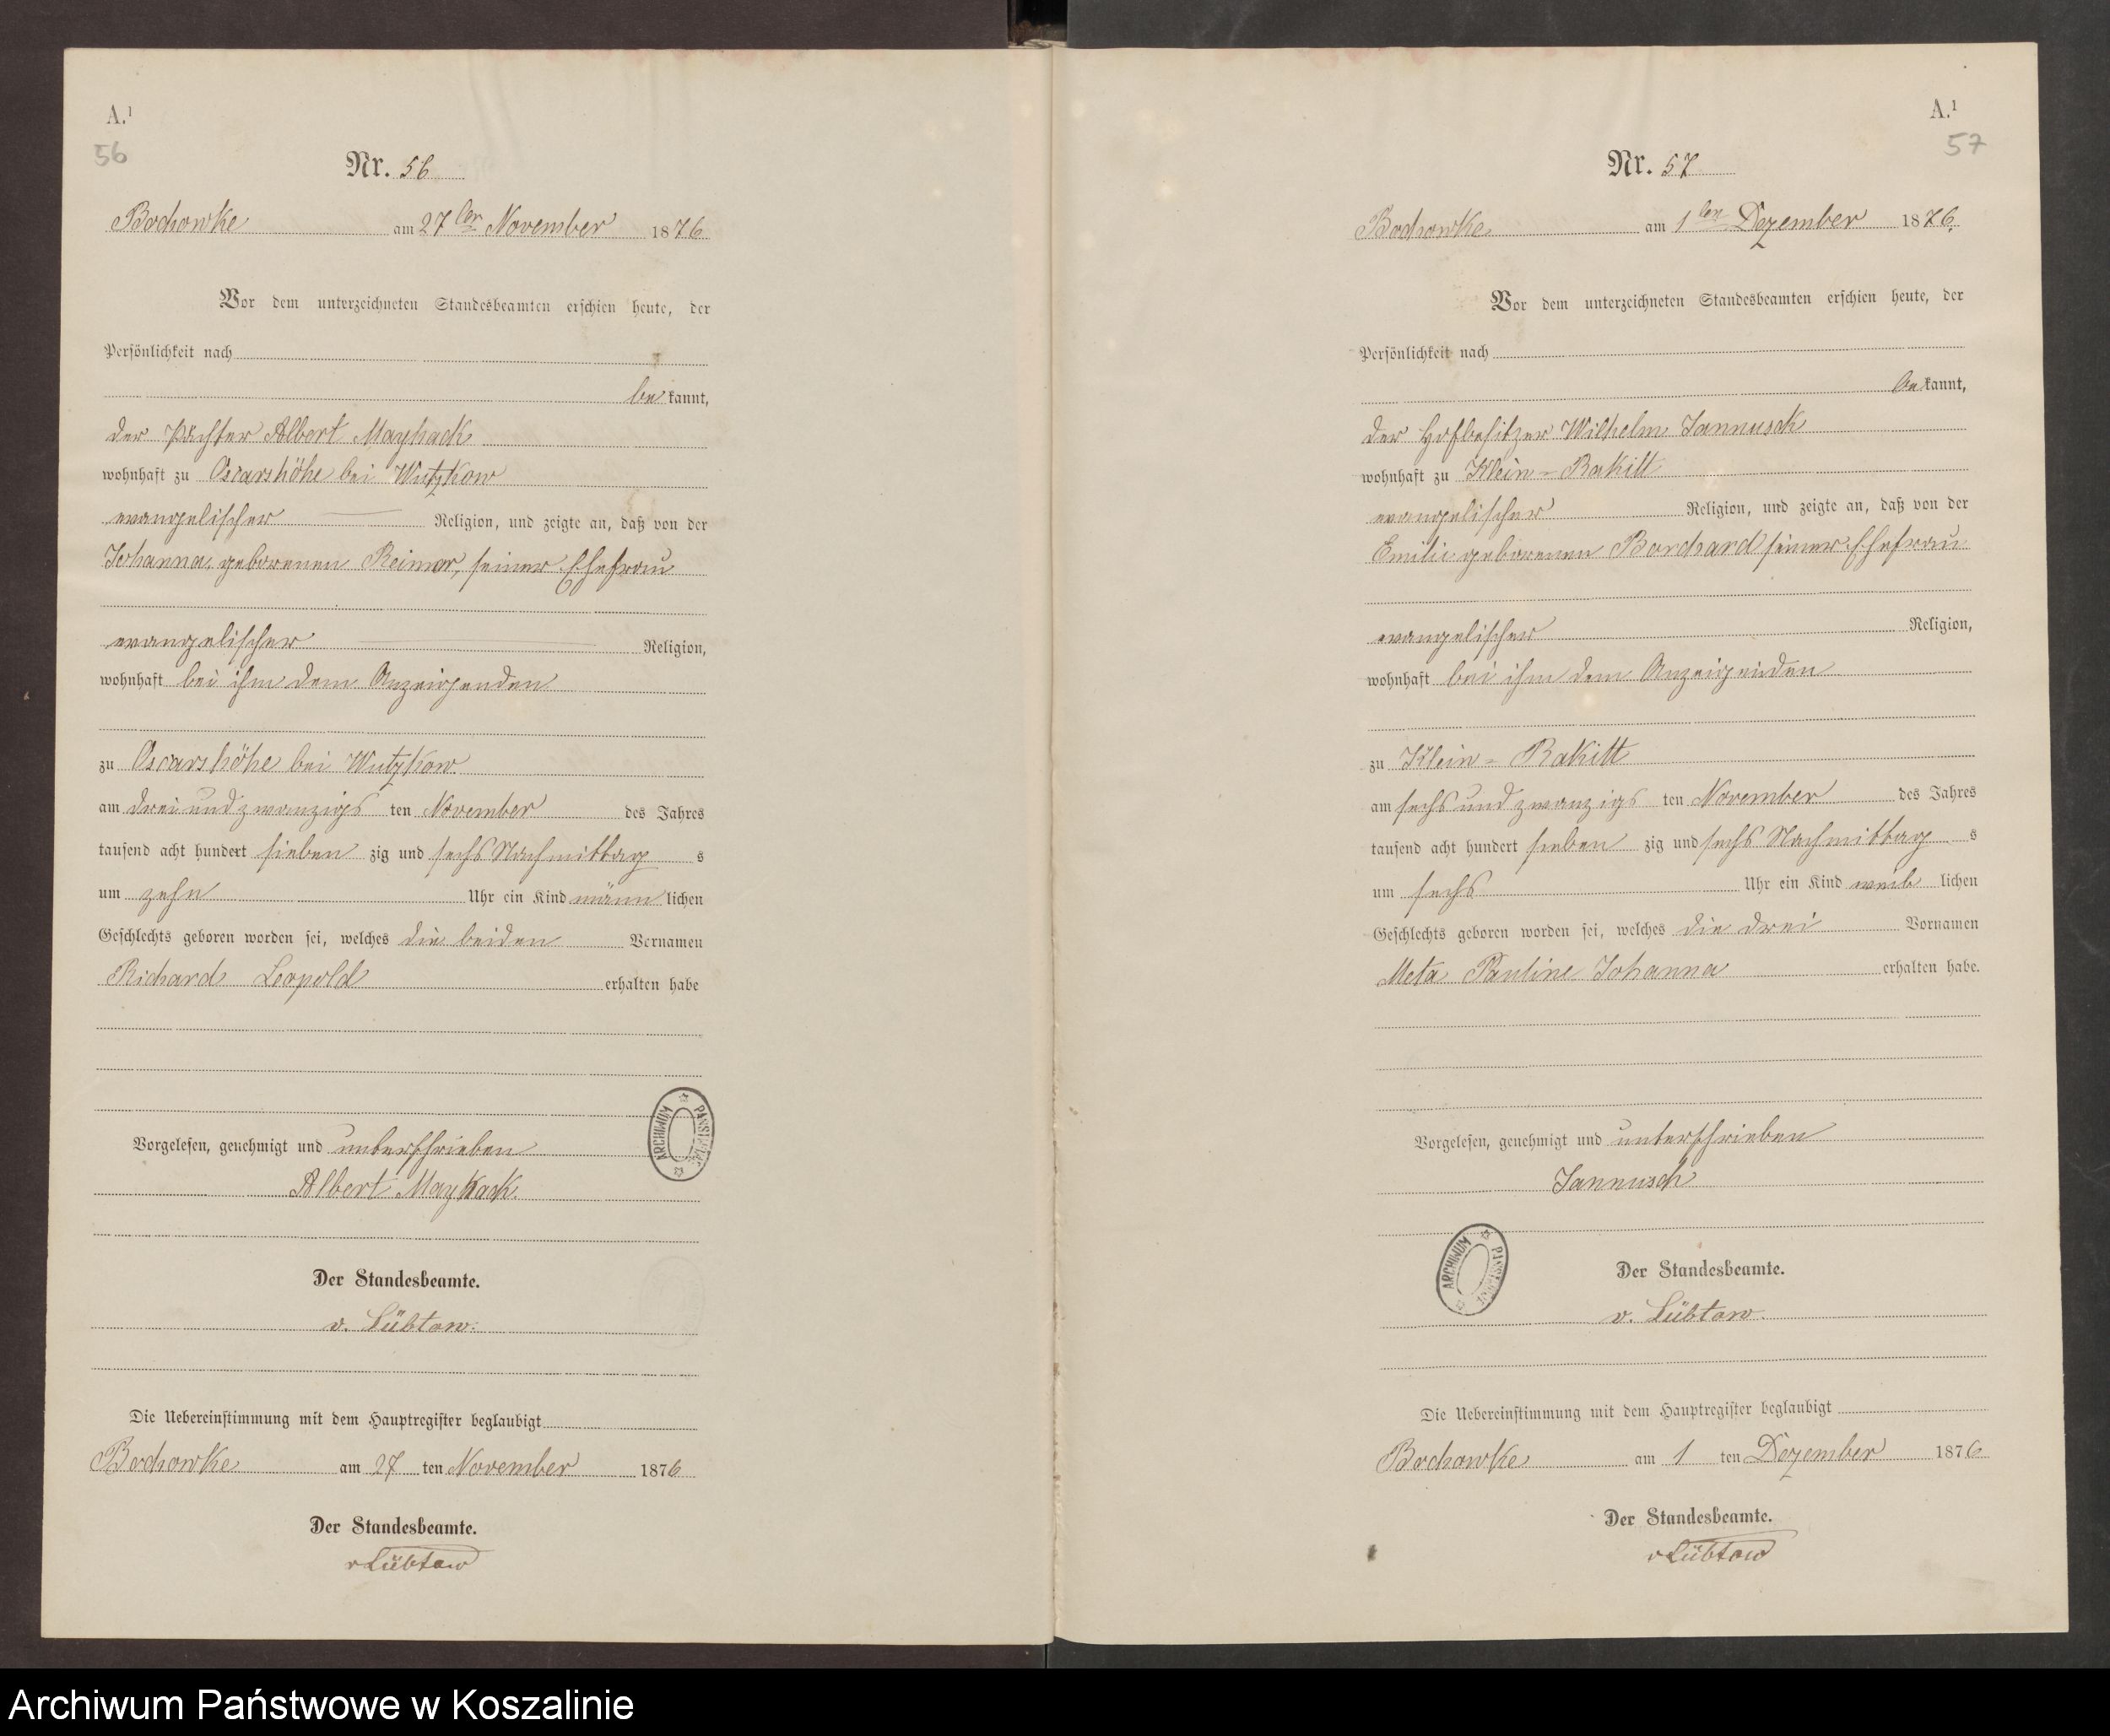 A.¹
56
Nr. 56
Bochowke am 27ten November 1876
Vor dem unterzeichneten Standesbeamten erschien heute, der
Persönlichkeit nach
be kannt,
der Pächter Albert Mayhack
wohnhaft zu Oscarshöhe bei Wutzkow
evangelischer Religion, und zeigte an, daß von der
Johanna, geborenen Reimer, seiner Ehefrau
evangelischer Religion,
wohnhaft bei ihm dem Anzeigenden
zu Oscarshöhe bei Wutzkow
am drei und zwanzigs ten November des Jahres
tausend acht hundert sieben zig und sechs Nachmittag s
um zehn Uhr ein Kind männ lichen
Geschlechts geboren worden sei, welches die beiden Vornamen
Richard Leopold erhalten habe
Vorgelesen, genehmigt und unterschrieben
Albert Mayhack
Der Standesbeamte.
v. Lübtow.
Die Uebereinstimmung mit dem Hauptregister beglaubigt
Bochowke am 27 ten November 1876
Der Standesbeamte.
vLübtow
ARCHIWUM PAŃSTWOWE
A.¹
57
Nr. 57
Bochowke am 1ten Dezember 1876.
Vor dem unterzeichneten Standesbeamten erschien heute, der
Persönlichkeit nach
be kannt,
der Hofbesitzer Wilhelm Jannusch
wohnhaft zu Klein-Rakitt
evangelischer Religion, und zeigte an, daß von der
Emilie geborenen Borchard seiner Ehefrau
evangelischer Religion,
wohnhaft bei ihm dem Anzeigenden
zu Klein-Rakitt
am sechs und zwanzigs ten November des Jahres
tausend acht hundert sieben zig und sechs Nachmittag s
um sechs Uhr ein Kind weib lichen
Geschlechts geboren worden sei, welches die drei Vornamen
Meta Pauline Johanna erhalten habe.
Vorgelesen, genehmigt und unterschrieben
Jannusch
Der Standesbeamte.
v. Lübtow.
Die Uebereinstimmung mit dem Hauptregister beglaubigt
Bochowke am 1 ten Dezember 1876
Der Standesbeamte.
vLübtow
ARCHIWUM PAŃSTWOWE
Archiwum Państwowe w Koszalinie